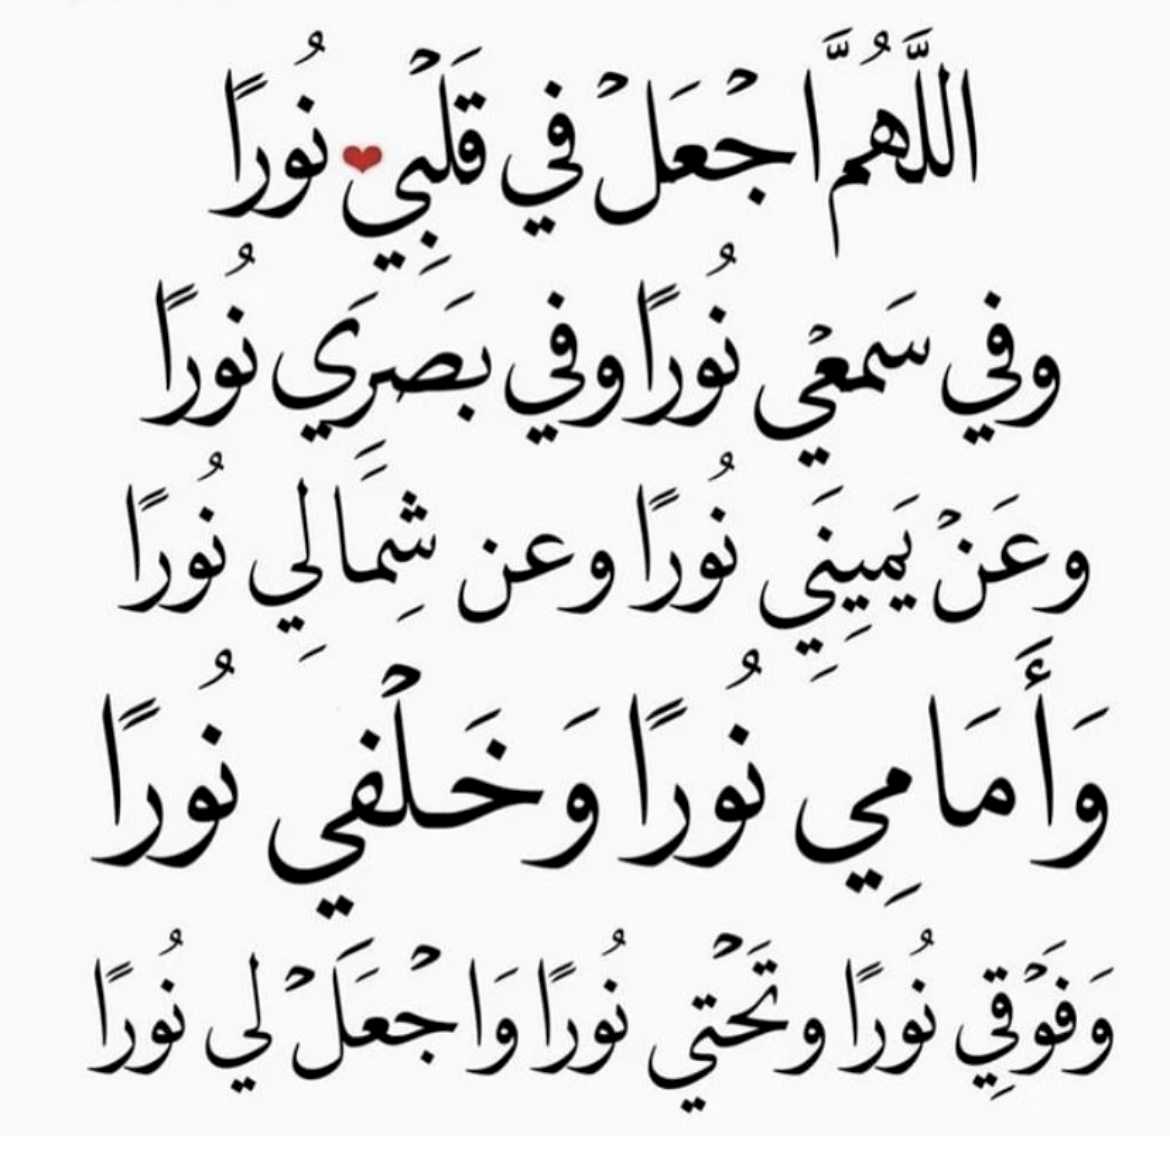 اللَّهُمَّ اجْعَلْ في قَلْبِي❤ نُورًا
وفي سَمعْي نُورًا وفي بَصَرَِي نُورًا
وعَنْ يَمِينَِي نُورًا وعن شِمَالِي نُورًا
وَأَمَامِي نُورًا وَخَلْفي نُورًا
وَفَوْقِي نُورًا وتَحْتي نُورًا وَاجْعَلْ لي نُورًا